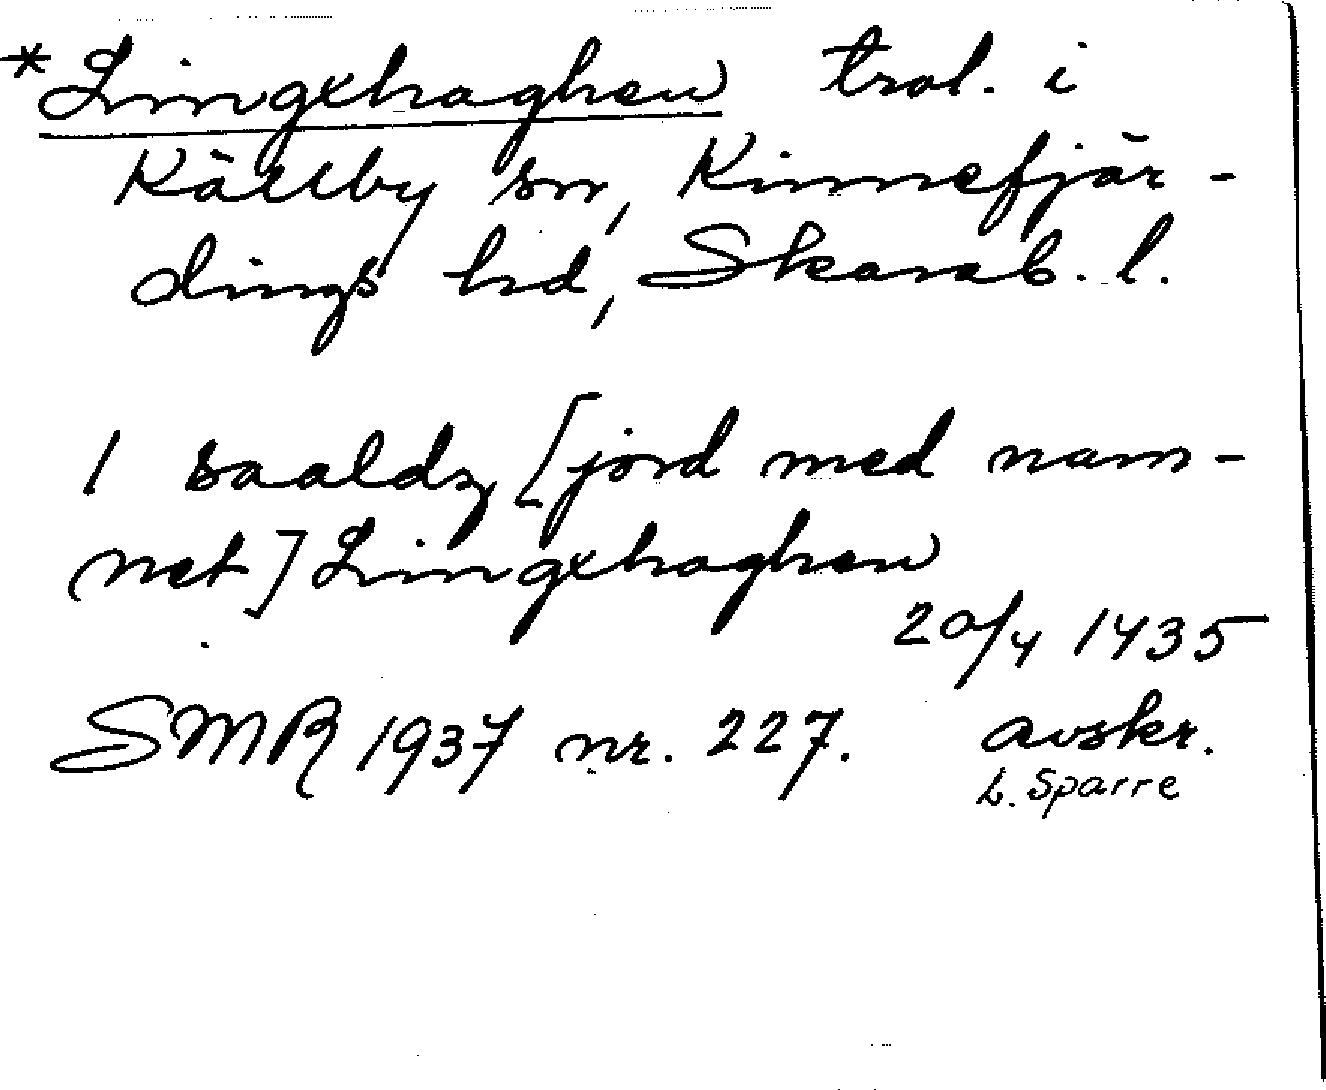 *Lingxhaghen trol. i
Källby sn, Kinnefjär-
dings hd, Skarab. l.
1 saaldz [jord med nam-
net] Lingxhaghen
20/4 1435
SMR 1937 nr. 227. avskr.
L. Sparre